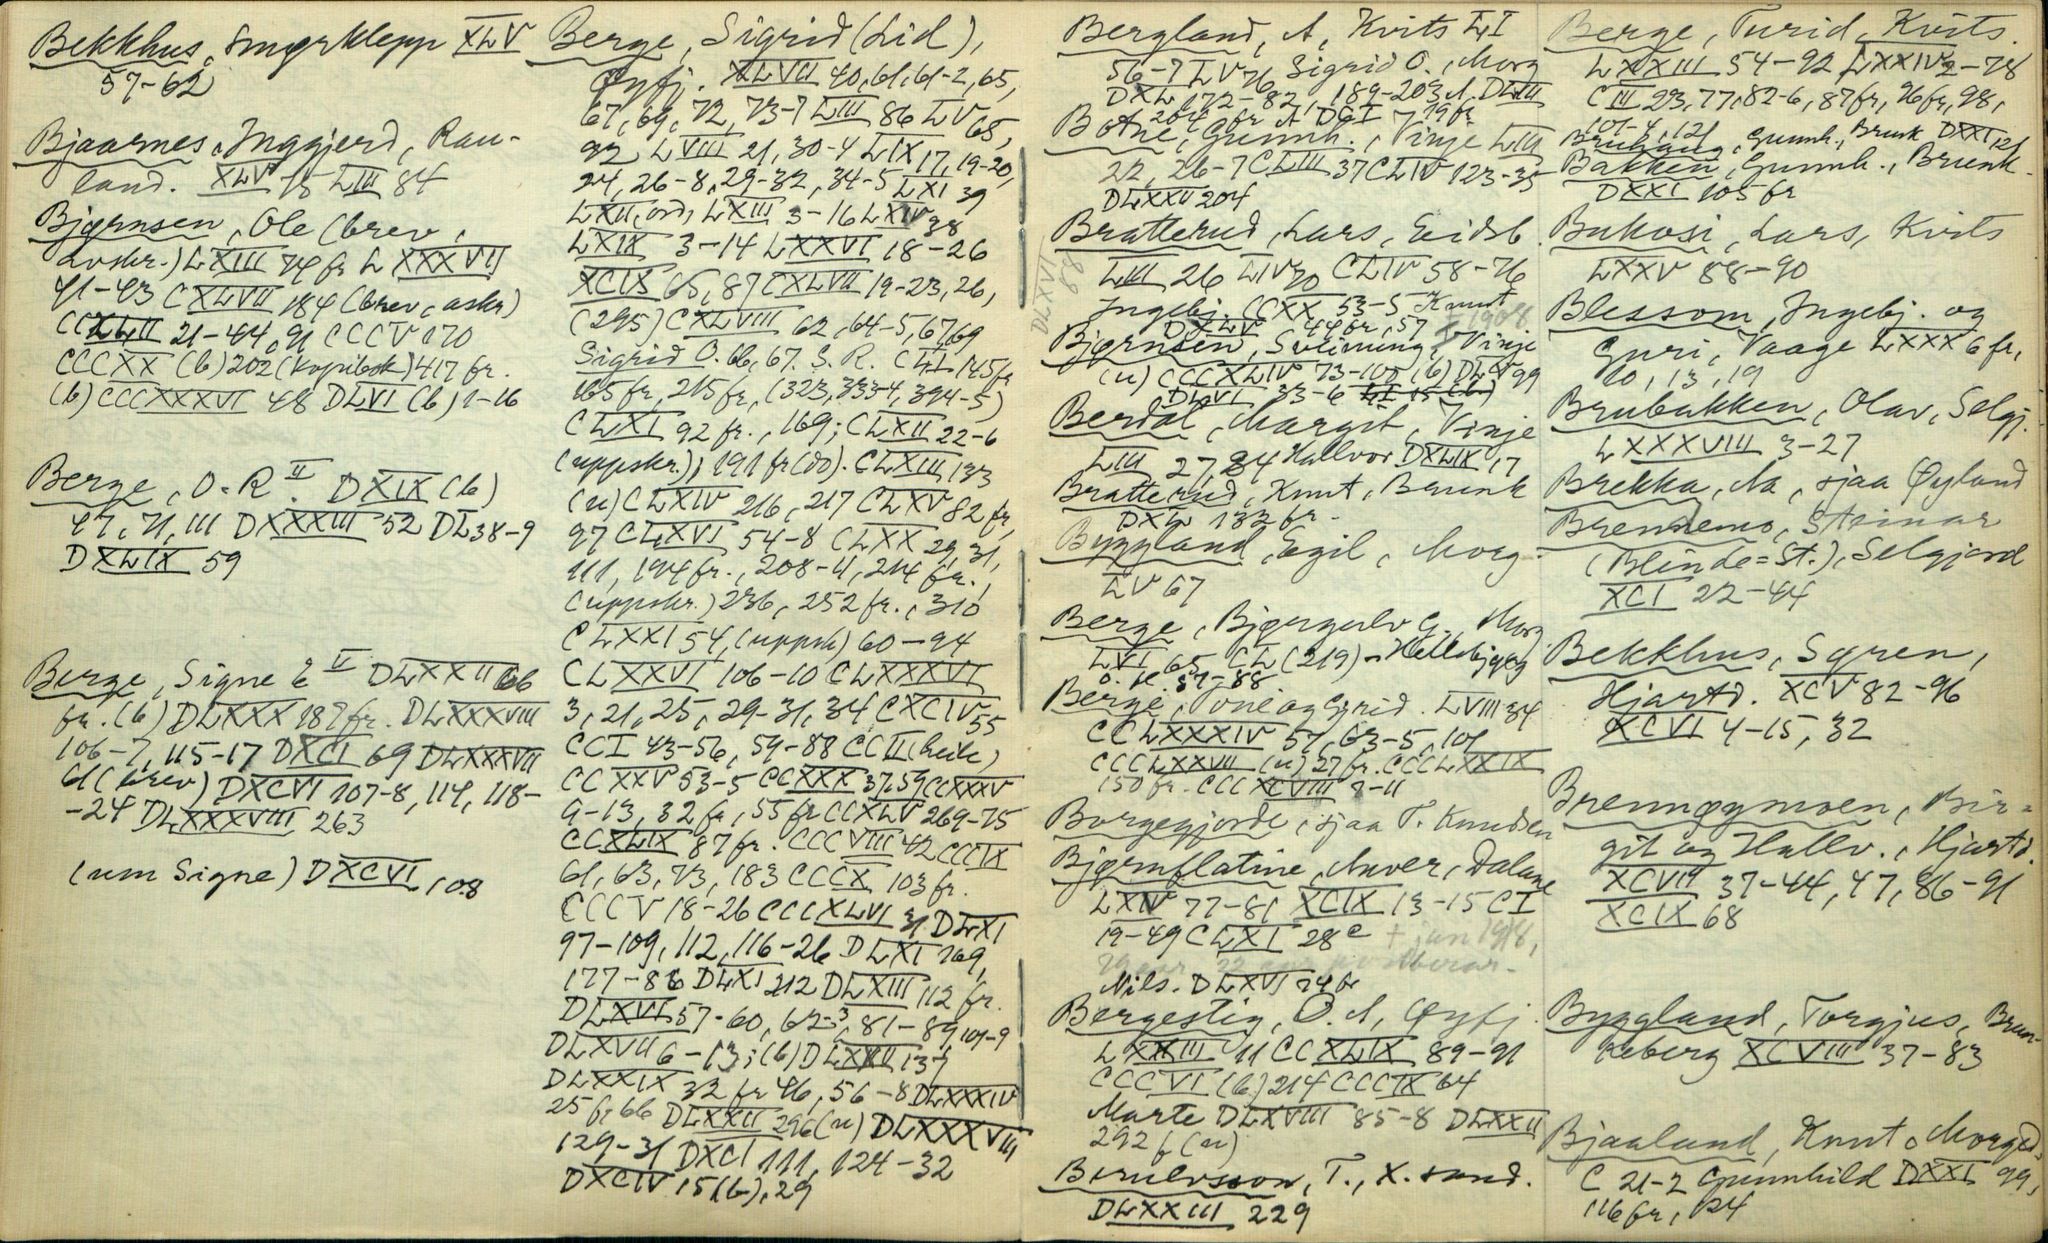 Bekkhus, Smørklepp XLV
57-62
Bjaarnes, Inggjerd, Rau-
land. XLV 75 LIII 84
Bjørnsen, Ole (brev,
avskr.) LXIII 74 fr L XXXVII
41-43 CXLVII 184 (brev, avskr)
21-44, 91 CCCV 170
CCCXX (b) 202 (kopibok) 417 fr.
(b) CCCXXXVI 48 DLVI (b) 1-16
Berge, O. R. II DXIX (b)
47, 71, 111 DXXXIII 52 DL 38-9
DXLIX 59
Berge, Signe II DLXXII 66
fr. (b) DLXXX 187 fr. DLXXXVIII
106-7, 115-17 DXCI 69 DLXXXVII
61 (brev) DXCVI 107-8, 114, 118-
-24 DLXXXVIII 263
(um Signe) DXCVI 108
Berge, Sigrid (Lid),
Øyfj. XLVII 40, 61, 61-2, 65,
67, 69, 72, 73-7 LIII 86 LV 65,
92 LVIII 21, 30-4 LIX 17, 19-20,
24, 26-8, 29-32, 34-5 LXI 39
LXII, ord, LXIII 3-16 LXIV 38
LXIX 3-14 LXXVI 18-26
XCIX 65, 87 CXLVII 19-23, 26,
(295) CXLVIII 62, 64-5, 67, 69
Sigrid O. 66, 67. S. R. 145 fr
165 fr, 215 fr, (323, 333-4, 394-5)
CLXI 92 fr., 169; CLXII 22-6
(uppskr.), 191 fr (do). CLXIII 133
(u) CLXIV 216, 217 CLXV 82 fr,
97 CLXVI 54-8 CLXX 29, 31,
111, 194 fr., 208-11, 214 fr.,
(uppskr.) 236, 252 fr., 310
CLXXI 54, (uppsk) 60-94
CLXXVI 106-10 CLXXXVI
3, 21, 25, 29-31, 34 CXCIV 55
CCI 43-56, 59-88 CCII (heile)
CCXXV 53-5 CCXXX 37, 59 CCXXXV
9-13, 32 fr, 55 fr CCXLV 269-75
CCXLIX 87 fr. CCCVIII 42 CCCIX
61, 63, 73, 183 CCCX 103 fr.
CCCV 18-26 CCCXLVI 31 DLXI
97-109, 112, 116-26 DLXI 169,
177-88 DLXI 212 DLXIII 112 fr.
DLXVI 57-60, 62-3, 81-89, 101-9
DLXVII 6-13; (b) 13-7
DLXXIX 32 fr 46, 56-8 DLXXXIV
25 fr 66 DLXXII 296 (u) DLXXXVIII
129-31 DXCI 111, 124-32
DXCIV 15 (b), 29
Bergland, A, Kvits LI
56-7 LV 76 Sigrid O., Morg
DXL 172-82, 189-203 A. DLIII
204 fr A DCI 79 fr
Botne, Gunnh., Vinje LIII
22, 26-7 CLIII 37 CLIV 123-35
DLXXII 204
Bratterud, Lars, Eidsb.
LIII 26 LIV 70 CLIV 58-76
Ingebj. CCXX 53-5 Knut
DXLV 44 fr, 57
DLXVI 88
Bjørnsen, Sveinung, Vinje
(u) CCCXLIV 73-100 (b) DLV 99
DLVI 33-6
Berdal, Margit, Vinje
LIII 27, 84 Hallvor DXLIX 17
Bratterud, Knut, Brunk
DXL 132 fr.
Byggland, Egil, Morg.
LV 67
Berge, Bjørgulv G. Morg.
LVI 65 CL (219)
Berge, Tone og Gyrid. LVIII 34
CCLXXXIV 57, 63-5, 101
CCCLXXVII (u) 27 fr. CCCLXXIX
150 fr. CCCXCVIII 7-11
Borgegjorde, sjaa T. Knudsen
Bjørnflatine, Anver, Dalane
LXIV 77-81 XCIX 13-15 CI
19-49 CLXI 28 c
Nils. DLXVI 74 fr
Bergestig, O. A, Øyfj.
LXXIII 11 CCXLIX 89-91
CCCVI (b) 214 CCCIX 64
Marte DLXVIII 85-8 DLXXII
292 f (u)
T., K. sand.
DLXXIII 229
Berge, Turid, Kvits.
LXXIII 54-92 LXXIV 2-78
CIII 23, 77, 82-6, 87 fr, 96 fr, 98,
101-4, 121
Bruhaug, Gunnh., Brunk DXXI 121
Bakken, Gunnh., Brunk.
DXXI 105 fr
Bukosi, Lars, Kvits
LXXV 88-90
Blessom, Ingebj. og
Guri, Vaage LXXX 6 fr,
10, 13, 19
Brubakken, Olav, Selgj.
LXXXVIII 3-27
Brekka, Aa, sjaa Øyland
Brennemo, Steinar
(Blinde=St.), Selgjord
XCI 22-44
Bekkhus, Syren,
Hjartd. XCV 82-96
XCVI 4-15, 32
Brennøymoen, Bir-
git og Hallv., Hjartd.
XCVII 37-44, 47, 86-91
XCIX 68
Byggland, Torgjus, Brun-
keberg XCVIII 37-83
Bjaaland, Knut, Morgedal,
C 21-2 Gunnhild DXXI 99,
116 fr, 124